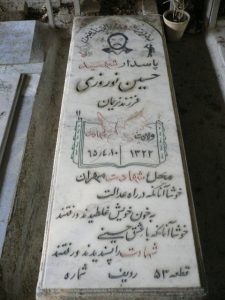 پاسدار شهید
حسین نوروزی
فرزند نریمان
ولادت شهادت
۱۳۲۲ ۶۵،۴،۱۰
محل شهادت مهران
خوشا آنانکه در راه عدالت
به خون خویش غلطیدند و رفتند
خوشا آنانکه با عشق حسینی
شهادت را پسندیدند و رفتند
قطعه ۵۳ ردیف شماره